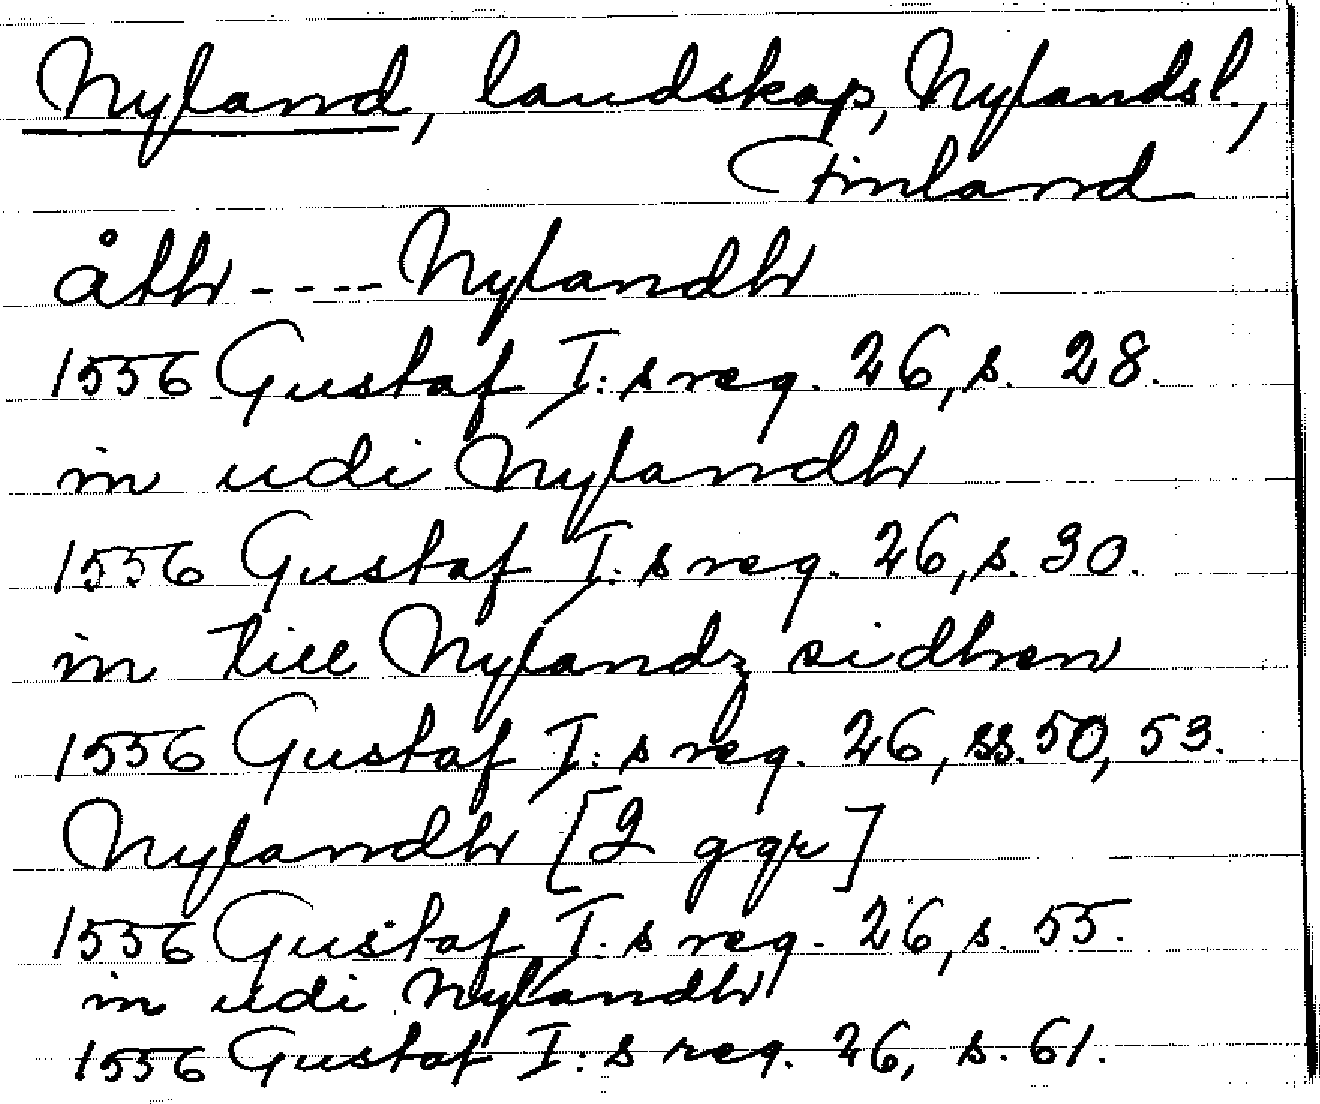 Nyland, landskap, Nylandsl.,
Finland
åth ---- Nylandh
1556 Gustaf I:s reg. 26, s. 28.
in udi Nylandh
1556 Gustaf I:s reg. 26, s. 30.
in till Nylandz sidhen
1556 Gustaf I:s reg. 26, ss. 50, 53.
Nylandh [2 ggr]
1556 Gustaf I:s reg. 26, s. 55.
in udi Nylandh
1556 Gustaf I:s reg. 26, s. 61.